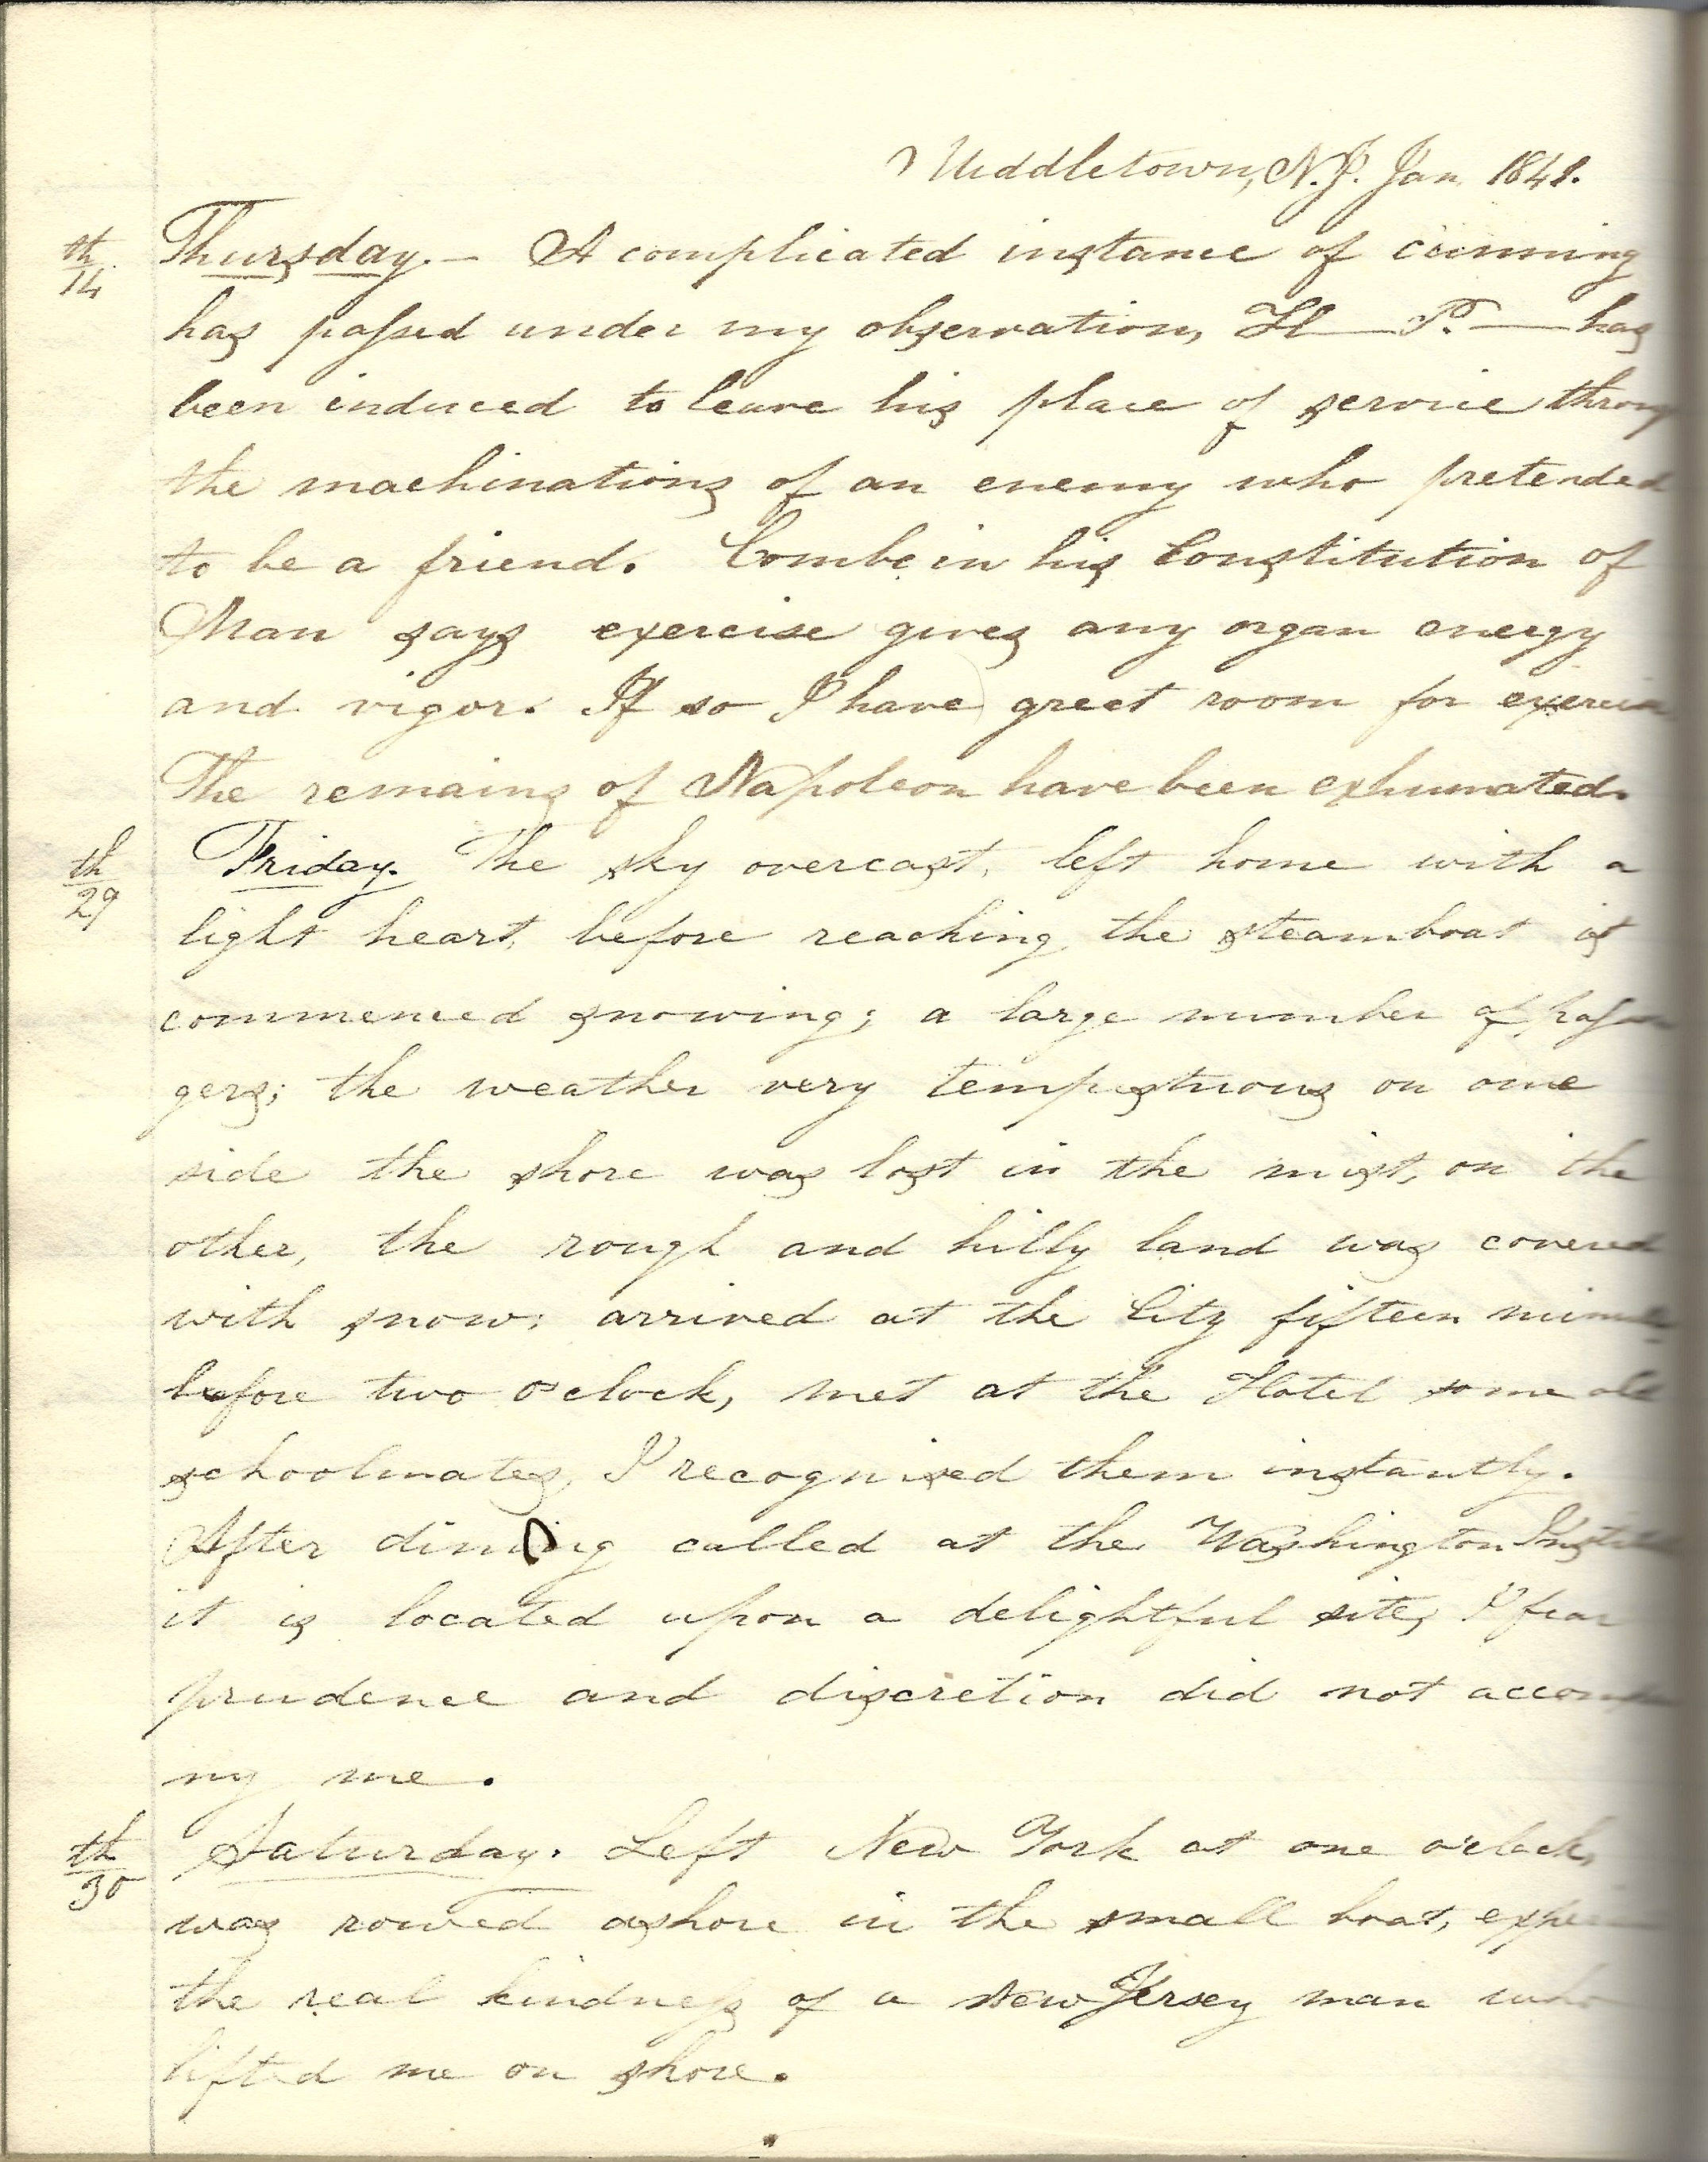 Middletown, N.J. Jan. 1841.
th/14 Thursday.— A complicated instance of cunning
has passed under my observation, H—— P.—— has
been induced to leave his place of service throug
the machinations of an enemy who pretended
to be a friend. Combe in his Constitution of
Man says exercise gives any organ energy
and vigor. If so I have great room for exercise
The remains of Napoleon have been exhumated.
th/29 Friday. The sky overcast, left home with a
light heart, before reaching the steamboat it
commenced snowing; a large number of passen
gers; the weather very tempestuous on one
side the shore was lost in the mist, on the
other, the rough and hilly land was covered
with snow; arrived at the City fifteen minutes
before two o'clock, met at the Hotel some old
schoolmates, I recognised them instantly.
After dining called at the Washington Institute
it is located upon a delightful site, I fear
prudence and discretion did not accompa
ny me.
th/30 Saturday. Left New York at one o'clock,
was rowed ashore in the small boat,
the real kindness of a New Jersey man who
lifted me on shore.